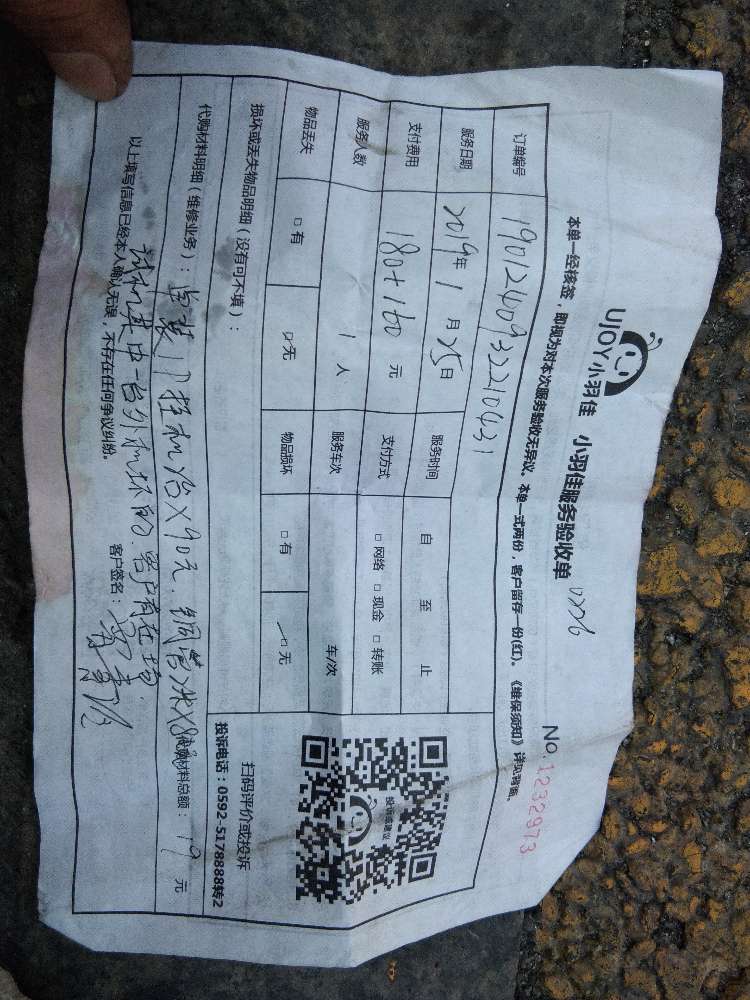 UJOY小羽佳 小羽佳服务验收单
NO.1232973
本单一经核签，即视为对本次服务验收无异议。本单一式两份，客户留存一份(红)。《维保须知》详见背面。
订单编号 19012409322210431
服务日期 2019年1月25日 服务时间 自 至 止
支付费用 180+160元 支付方式 □网络 □现金 □转账
服务人数 1人 服务车次 车/次
物品丢失 □有 □无 物品损坏 □有 □无
损坏或丢失物品明细（没有可不填）：
扫码评价或投诉
投诉电话：0592-5178888转2
投诉或建议
代购材料明细（维修业务）： 挂机 台X90元. 铜管 代购材料总额： 元
试机其中一台外机坏的. 客户有在场.
以上填写信息已经本人确认无误，不存在任何争议纠纷。 客户签名：